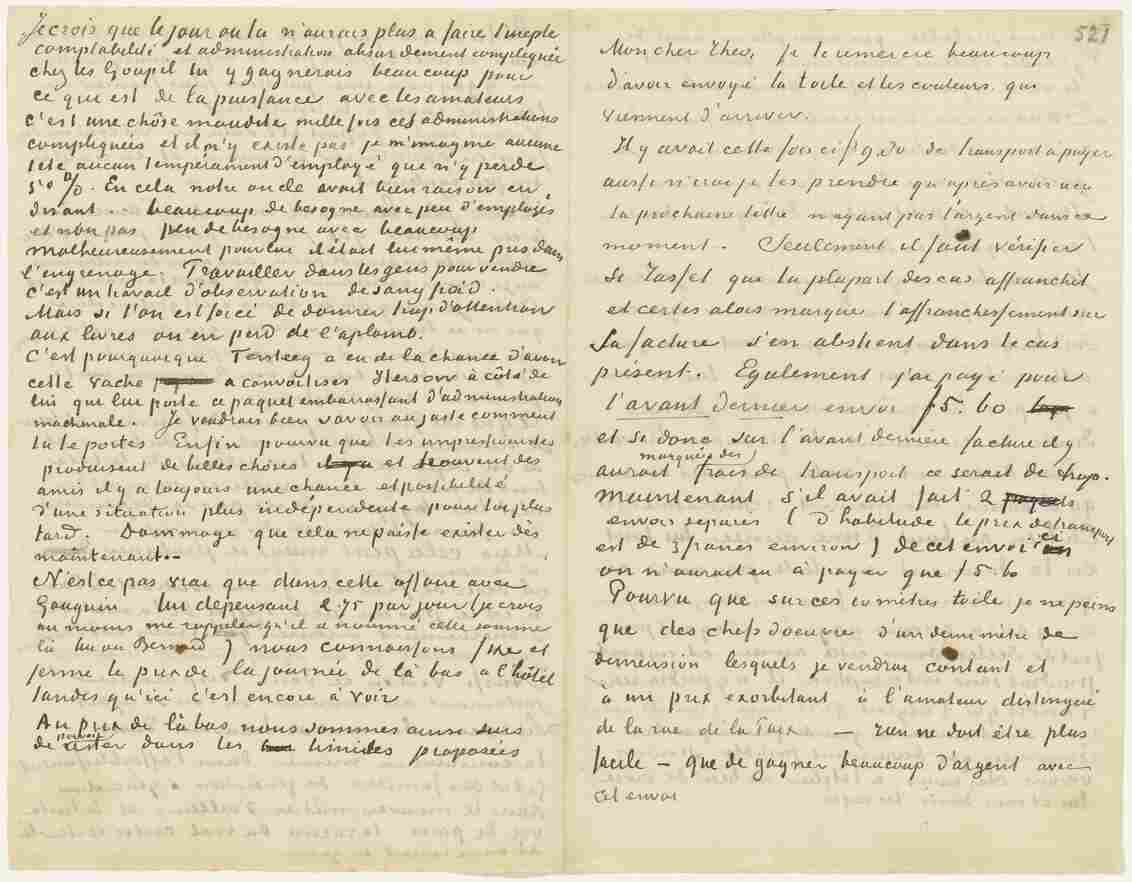 Je crois que le jour où tu n'aurais plus à faire l'inepte
comptabilité et administration absurdement compliquée
chez les Goupil tu y gagnerais beaucoup pour
ce qui est de la puissance avec les amateurs
c'est une chôse maudite mille fois ces administrations
compliquées et il n'y existe pas je m'imagine aucune
tete aucun tempérament d'employé que n'y perde
50%. En cela notre oncle avait bien raison en
disant. beaucoup de besogne avec peu d'employés
et non pas peu de besogne avec beaucoup
malheureusement pour lui il était lui même pris dans
l'engrenage. Travailler dans les gens pour vendre
c'est un travail d'observation de sang froid.
Mais si l'on est forcé de donner trop d'attention
aux livres on en perd de l'aplomb.
C'est pourquoi que Tersteeg a eu de la chance d'avoir
cette vache a convoitises Iterson à côté de
lui qui lui porte ce paquet embarrassant d'administration
machinale. Je voudrais bien savoir au juste comment
tu te portes Enfin pourvu que les impressionistes
produisent de belles chôses et trouvent des
amis il y a toujours une chance et possibilité
d'une situation plus indépendente pour toi plus
tard. Dommage que cela ne puisse exister dès
maintenant.
N'est ce pas vrai que dans cette affaire avec
Gauguin lui dépensant 2.75 par jour (je crois
au moins me rappeler qu'il a nommé cette somme
là lui ou Bernard) nous connaissons fixe et
ferme le prix de la journée de là bas à l'hôtel
tandis qu'ici c'est encore à voir
Au prix de là bas nous sommes aussi surs
de pouvoir rester dans les limites proposées
521
Mon cher Theo, je te remercie beaucoup
d'avoir envoyé la toile et les couleurs qui
viennent d'arriver.
Il y avait cette fois ci f 9.80 de transport à payer
aussi n'irai je les prendre qu'après avoir reçu
ta prochaine lettre n'ayant pas l'argent dans ce
moment. Seulement il faut vérifier
si Tasset que la plupart des cas affranchit
et certes alors marque l'affranchissement sur
sa facture s'en abstient dans le cas
présent. Egalement j'ai payé pour
l'avant dernier envoi f 5.60
et si donc sur l'avant dernière facture il y
aurait marqués des frais de transport ce serait de trop.
Maintenant s'il avait fait 2
envois separes (D'habitude le prix de transport
est de 3 francs environ) de cet envoi ci
on n'aurait eu à payer que f 5.60
Pourvu que sur ces 10 mètres toile je ne peins
que des chefs d'oeuvre d'un demi mètre de
dimension lesquels je vendrai contant et
à un prix exorbitant à l'amateur distingué
de la rue de la Paix — rien ne doit être plus
facile — que de gagner beaucoup d'argent avec
cet envoi